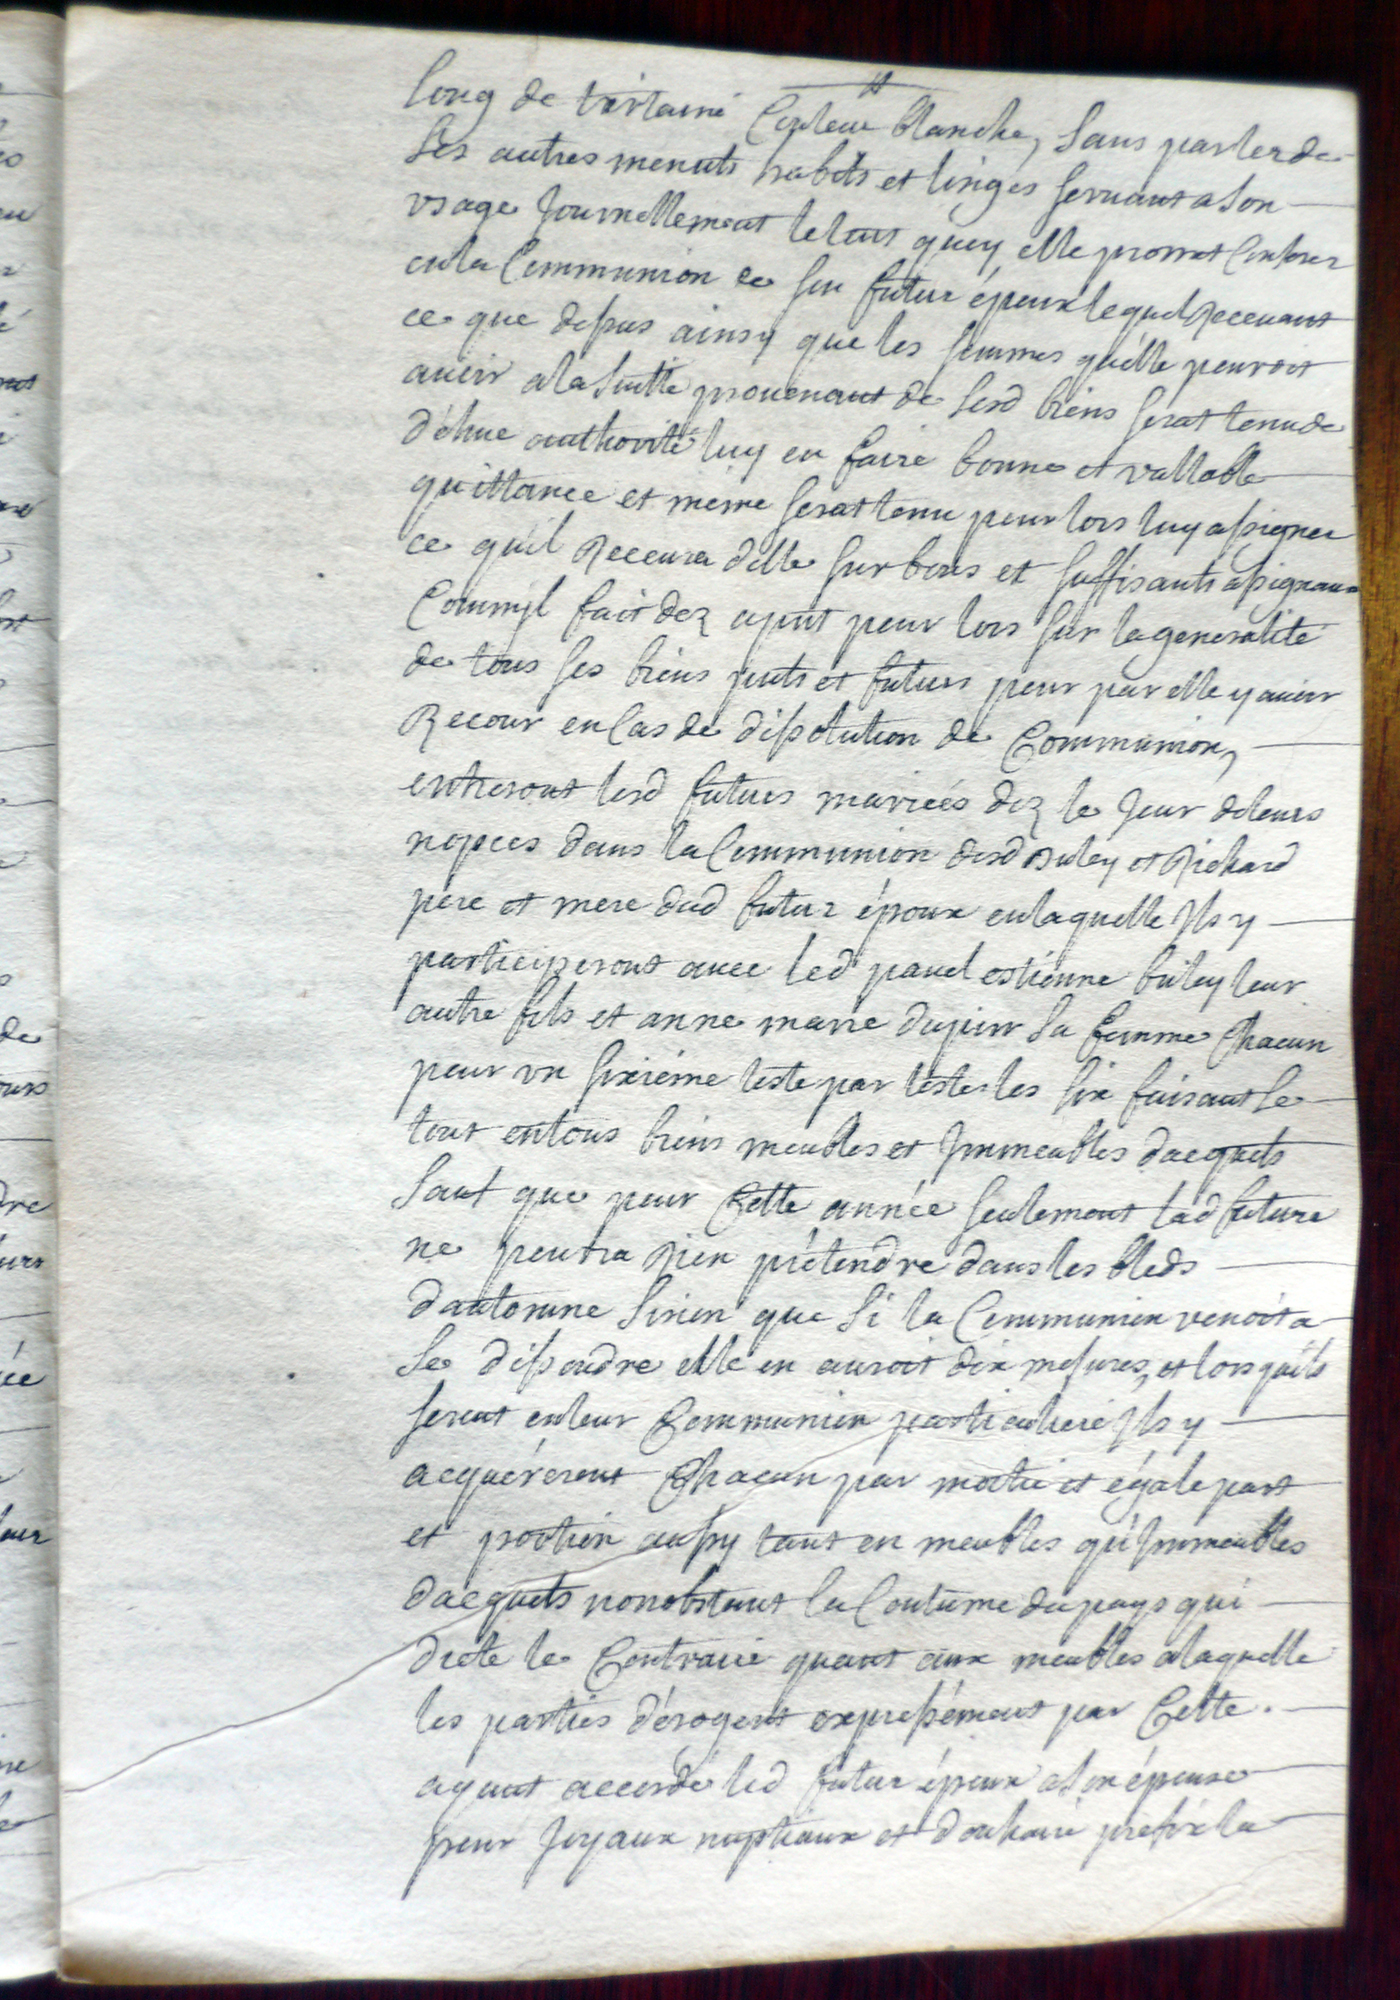 long de tirtaine Couleur blanche, sans parler de
ses autres menuts habits et linges servant a son
usage journellement le tout quoy elle promet Conferer
en la Communion de son futur époux lequel Recevant
ce que dessus ainsy que les sommes quélle pourroit
avoir a la suitte provenant de sesd biens serat tenu de
d'ehue authorité luy en faire bonne et vallable
quittance et méme serat tenu pour lors luy assigner
ce quil Recevra delle sur bons et suffisants assignaux
Comm'jl fait dez apnt pour lors sur la generalité
de tous ses biens pnts et futurs pour par elle y avoir
Recour en Cas de dissolution de Communion,
entreront lesd futurs mariées dez le Jour de leurs
nopces dans la Communion desd buley et Richard
pére et mere dud futur époux en laquelle Jls y
participeront avec led panel estienne buley leur
autre fils et anne marie dupin sa femme Chacun
pour un sixiéme teste par teste les six faisant le
tout en tous biens meubles et Jmmeubles dacquets
Sauf que pour Cette année seulement lad future
ne poutra Rien prétendre dans les bleds
dautomne sinon que si la Communion venoit a
se dissoudre elle en auroit dix mesures, et lors quils
seront en leur Communion particuliere Jls y
acquéreront Chacun par moitié et égale part
et portion aussy tant en meubles qu'Jmmeubles
dacquets nonobstant la Coutume du pays qui
dicte le Contraire quant aux meubles a laquelle
les parties dérogent expressément par Cette.
ayant accordé led futur époux a son épouse
pour Joyaux nuptiaux et douhaire préfix la